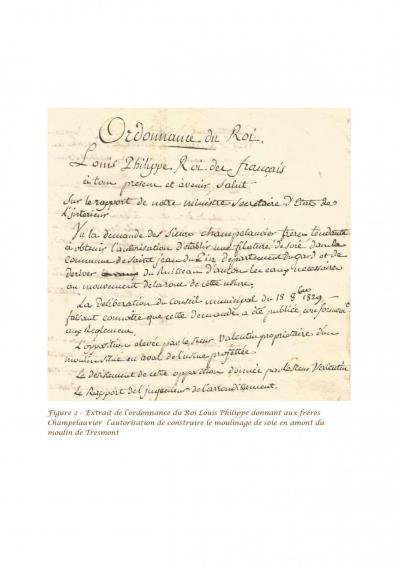 Ordonnance du Roi.
Louis Philippe Roi des français
à tous present et avenir Salut
Sur le rapport de notre ministre Secretaire d'Etat de
l'interieur
Vu la demande des Sieurs champelauvier freres tendante
à obtenir l'autorisation d'établir une filature de soie dans la
commune de Saint jean du departement du gard et de
deriver du Ruisseau d' les eaux necessaires
au mouvement de la roue de cette usine.
La deliberation du Conseil municipal du 18 8bre 1829
faisant connoitre que cette demande a été publiée conformément
aux Reglemens.
L'opposition elevée par le sieur Valentin propriétaire d'un
moulin situé en aval de l'usine projettée
Le desistement de cette opposition donnée par le sieur Valentin
Le Rapport de l'ingenieur de l'arrondissement.
Figure 2 – Extrait de l'ordonnance du Roi Louis Philippe donnant aux frères
Champelauvier l'autorisation de construire le moulinage de soie en amont du
moulin de Tresmont